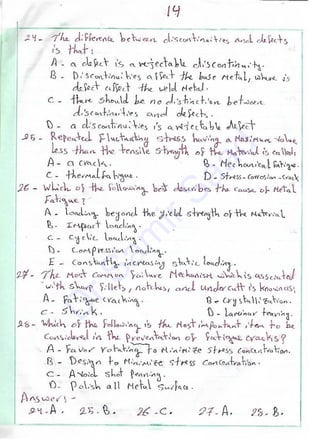 14
24- The difference between discontinuities and defects
is that:
A- a defect is a rejectable discontinuity.
B- Discontinuities affect the base metal, where is
defect affect the weld metal.
C- there should be no distinction between
discontinuities and defects.
D- a discontinuities is a rejectable defect
25- Repeated fluctuating stress having a maximum value
less than the tensile strength of the material is called:
A- a crack. B- Mechanical fatigue.
C- thermal fatigue. D- Stress-corrosion-crack
26- Which of the following best describes the cause of metal
Fatigue?
A- Loading beyond the yield strength of the Material
B- Impact loading.
C- Cyclic loading.
D- Compression loading.
E- Constantly increasing static loading.
27- The Most Common failure Mechanism which is associated
with sharp fillets, notches, and undercut is known as;
A- Fatigue cracking. B- Crystallization.
C- Shrink. D- Laminar tearing.
28- Which of the following is the Most important item to be
Considered in the prevention of fatigue cracks?
A- Favor rotating to Minimize stress concentration.
B- Design to Minimize stress concentration.
C- Avoid shot penning.
D- Polish all Metal surface.
Answers:-
24-A. 25-B. 26-C. 27-A. 28-B.